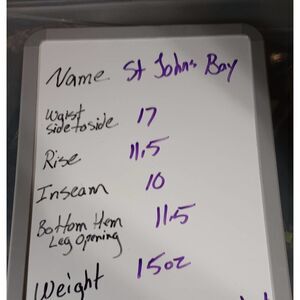 Name St Johns Bay
Waist
side to side 17
Rise 11.5
Inseam 10
Bottom Hem
Leg Opening 11.5
Weight 15oz